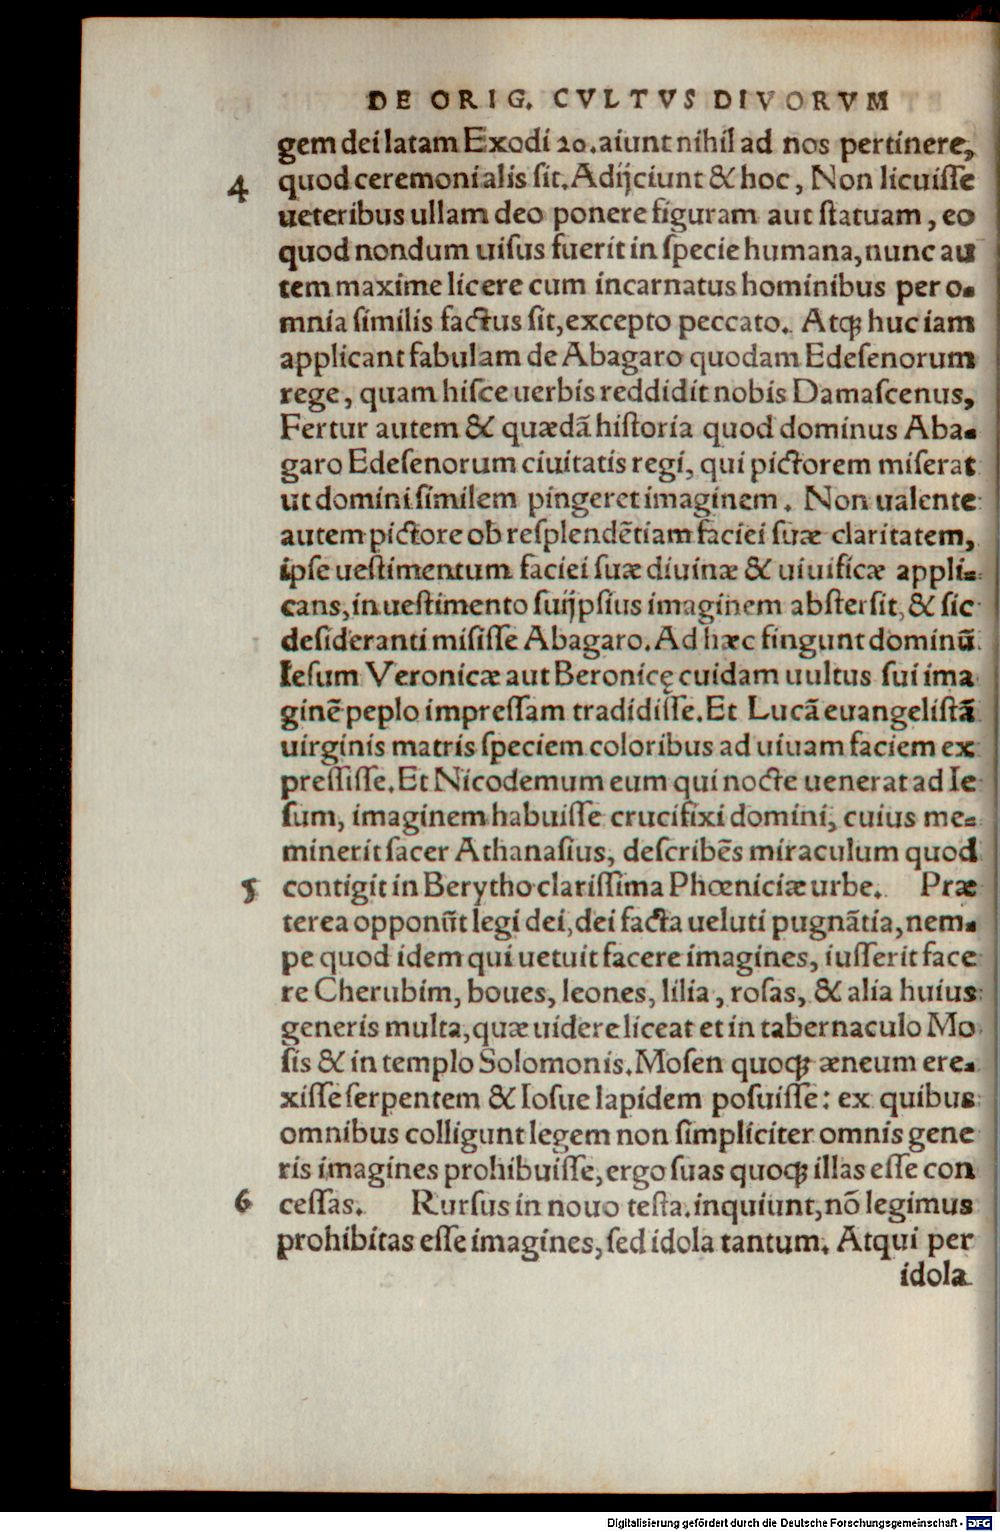 DE ORIG. CVLTVS DIVORVM
gem dei latam Exodi 20. aiunt nihil ad nos pertinere,
4 quod ceremonialis sit. Adijciunt & hoc, Non licuisse
ueteribus ullam deo ponere figuram aut statuam, eo
quod nondum uisus fuerit in specie humana, nunc au
tem maxime licere cum incarnatus hominibus per o-
mnia similis factus sit, excepto peccato. Atqꝫ huc iam
applicant fabulam de Abagaro quodam Edesenorum
rege, quam hisce uerbis reddidit nobis Damascenus,
Fertur autem & quædã historia quod dominus Aba-
garo Edesenorum ciuitatis regi, qui pictorem miserat
ut domini similem pingeret imaginem. Non ualente
autem pictore ob resplendẽtiam faciei suæ claritatem,
ipse uestimentum faciei suæ diuinæ & uiuificæ appli-
cans, in uestimento suijpsius imaginem abstersit, & sic
desideranti misisse Abagaro. Ad hæc fingunt dominũ
Iesum Veronicæ aut Beronicę cuidam uultus sui ima
ginẽ peplo impressam tradidisse. Et Lucã euangelistã
uirginis matris speciem coloribus ad uiuam faciem ex
pressisse. Et Nicodemum eum qui nocte uenerat ad Ie
sum, imaginem habuisse crucifixi domini, cuius me-
minerit sacer Athanasius, describẽs miraculum quod
5 contigit in Berytho clarissima Phœniciæ urbe. Præ
terea opponũt legi dei, dei facta ueluti pugnãtia, nem-
pe quod idem qui uetuit facere imagines, iusserit face
re Cherubim, boues, leones, lilia, rosas, & alia huius
generis multa, quæ uidere liceat et in tabernaculo Mo
sis & in templo Solomonis. Mosen quoqꝫ æneum ere-
xisse serpentem & Iosue lapidem posuisse: ex quibus
omnibus colligunt legem non simpliciter omnis gene
ris imagines prohibuisse, ergo suas quoqꝫ illas esse con
6 cessas. Rursus in nouo testa. inquiunt, nõ legimus
prohibitas esse imagines, sed idola tantum. Atqui per
idola
Digitalisierung gefördert durch die Deutsche Forschungsgemeinschaft - DFG